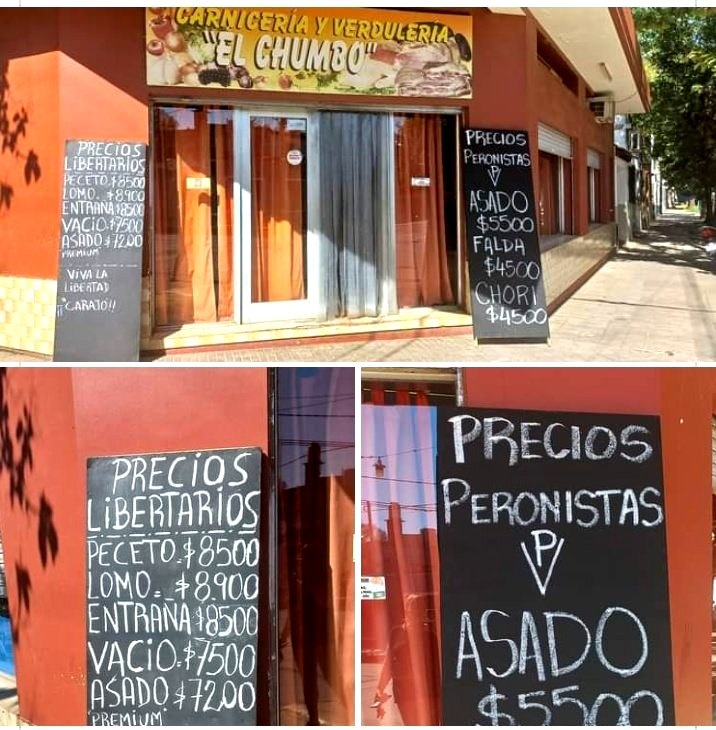 CARNICERÍA Y VERDULERÍA
"EL CHUMBO"
PRECIOS
LIBERTARIOS
PECETO.$8500
LOMO.$8900
ENTRAÑA $8500
VACIO $7500
ASADO $7200
"PREMIUM"
VIVA LA
LIBERTAD
¡¡CARAJO!!
PRECIOS
PERONISTAS
PV
ASADO
$5500
FALDA
$4500
CHORI
$4500
PRECIOS
LIBERTARIOS
PECETO.$8500
LOMO. $8.900
ENTRAÑA $8500
VACIO.$7500
ASADO.$72,00
"PREMIUM"
PRECIOS
PERONISTAS
PV
ASADO
$5500